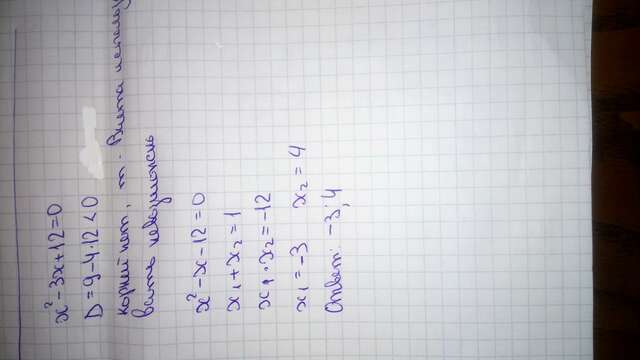 x² - 3x + 12 = 0
D = 9 - 4·12 < 0
корней нет, т. Виета использо
вать невозможно
x² - x - 12 = 0
x₁ + x₂ = 1
x₁ · x₂ = -12
x₁ = -3 x₂ = 4
Ответ: -3; 4